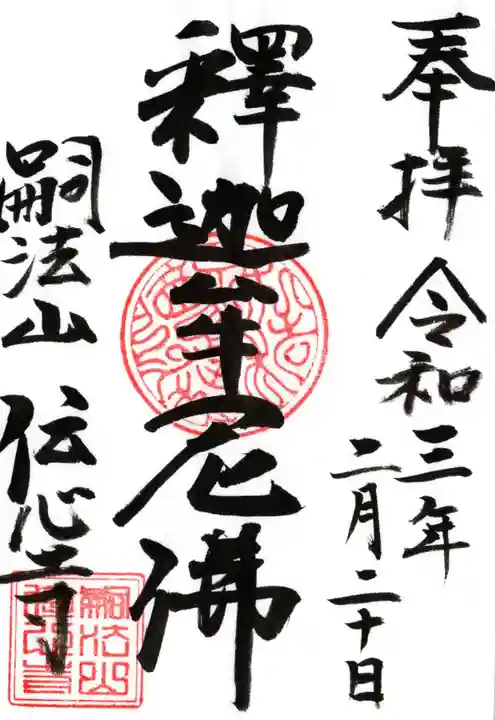 奉拝 令和三年
二月二十日
釋迦牟尼佛
嗣法山 伝心寺